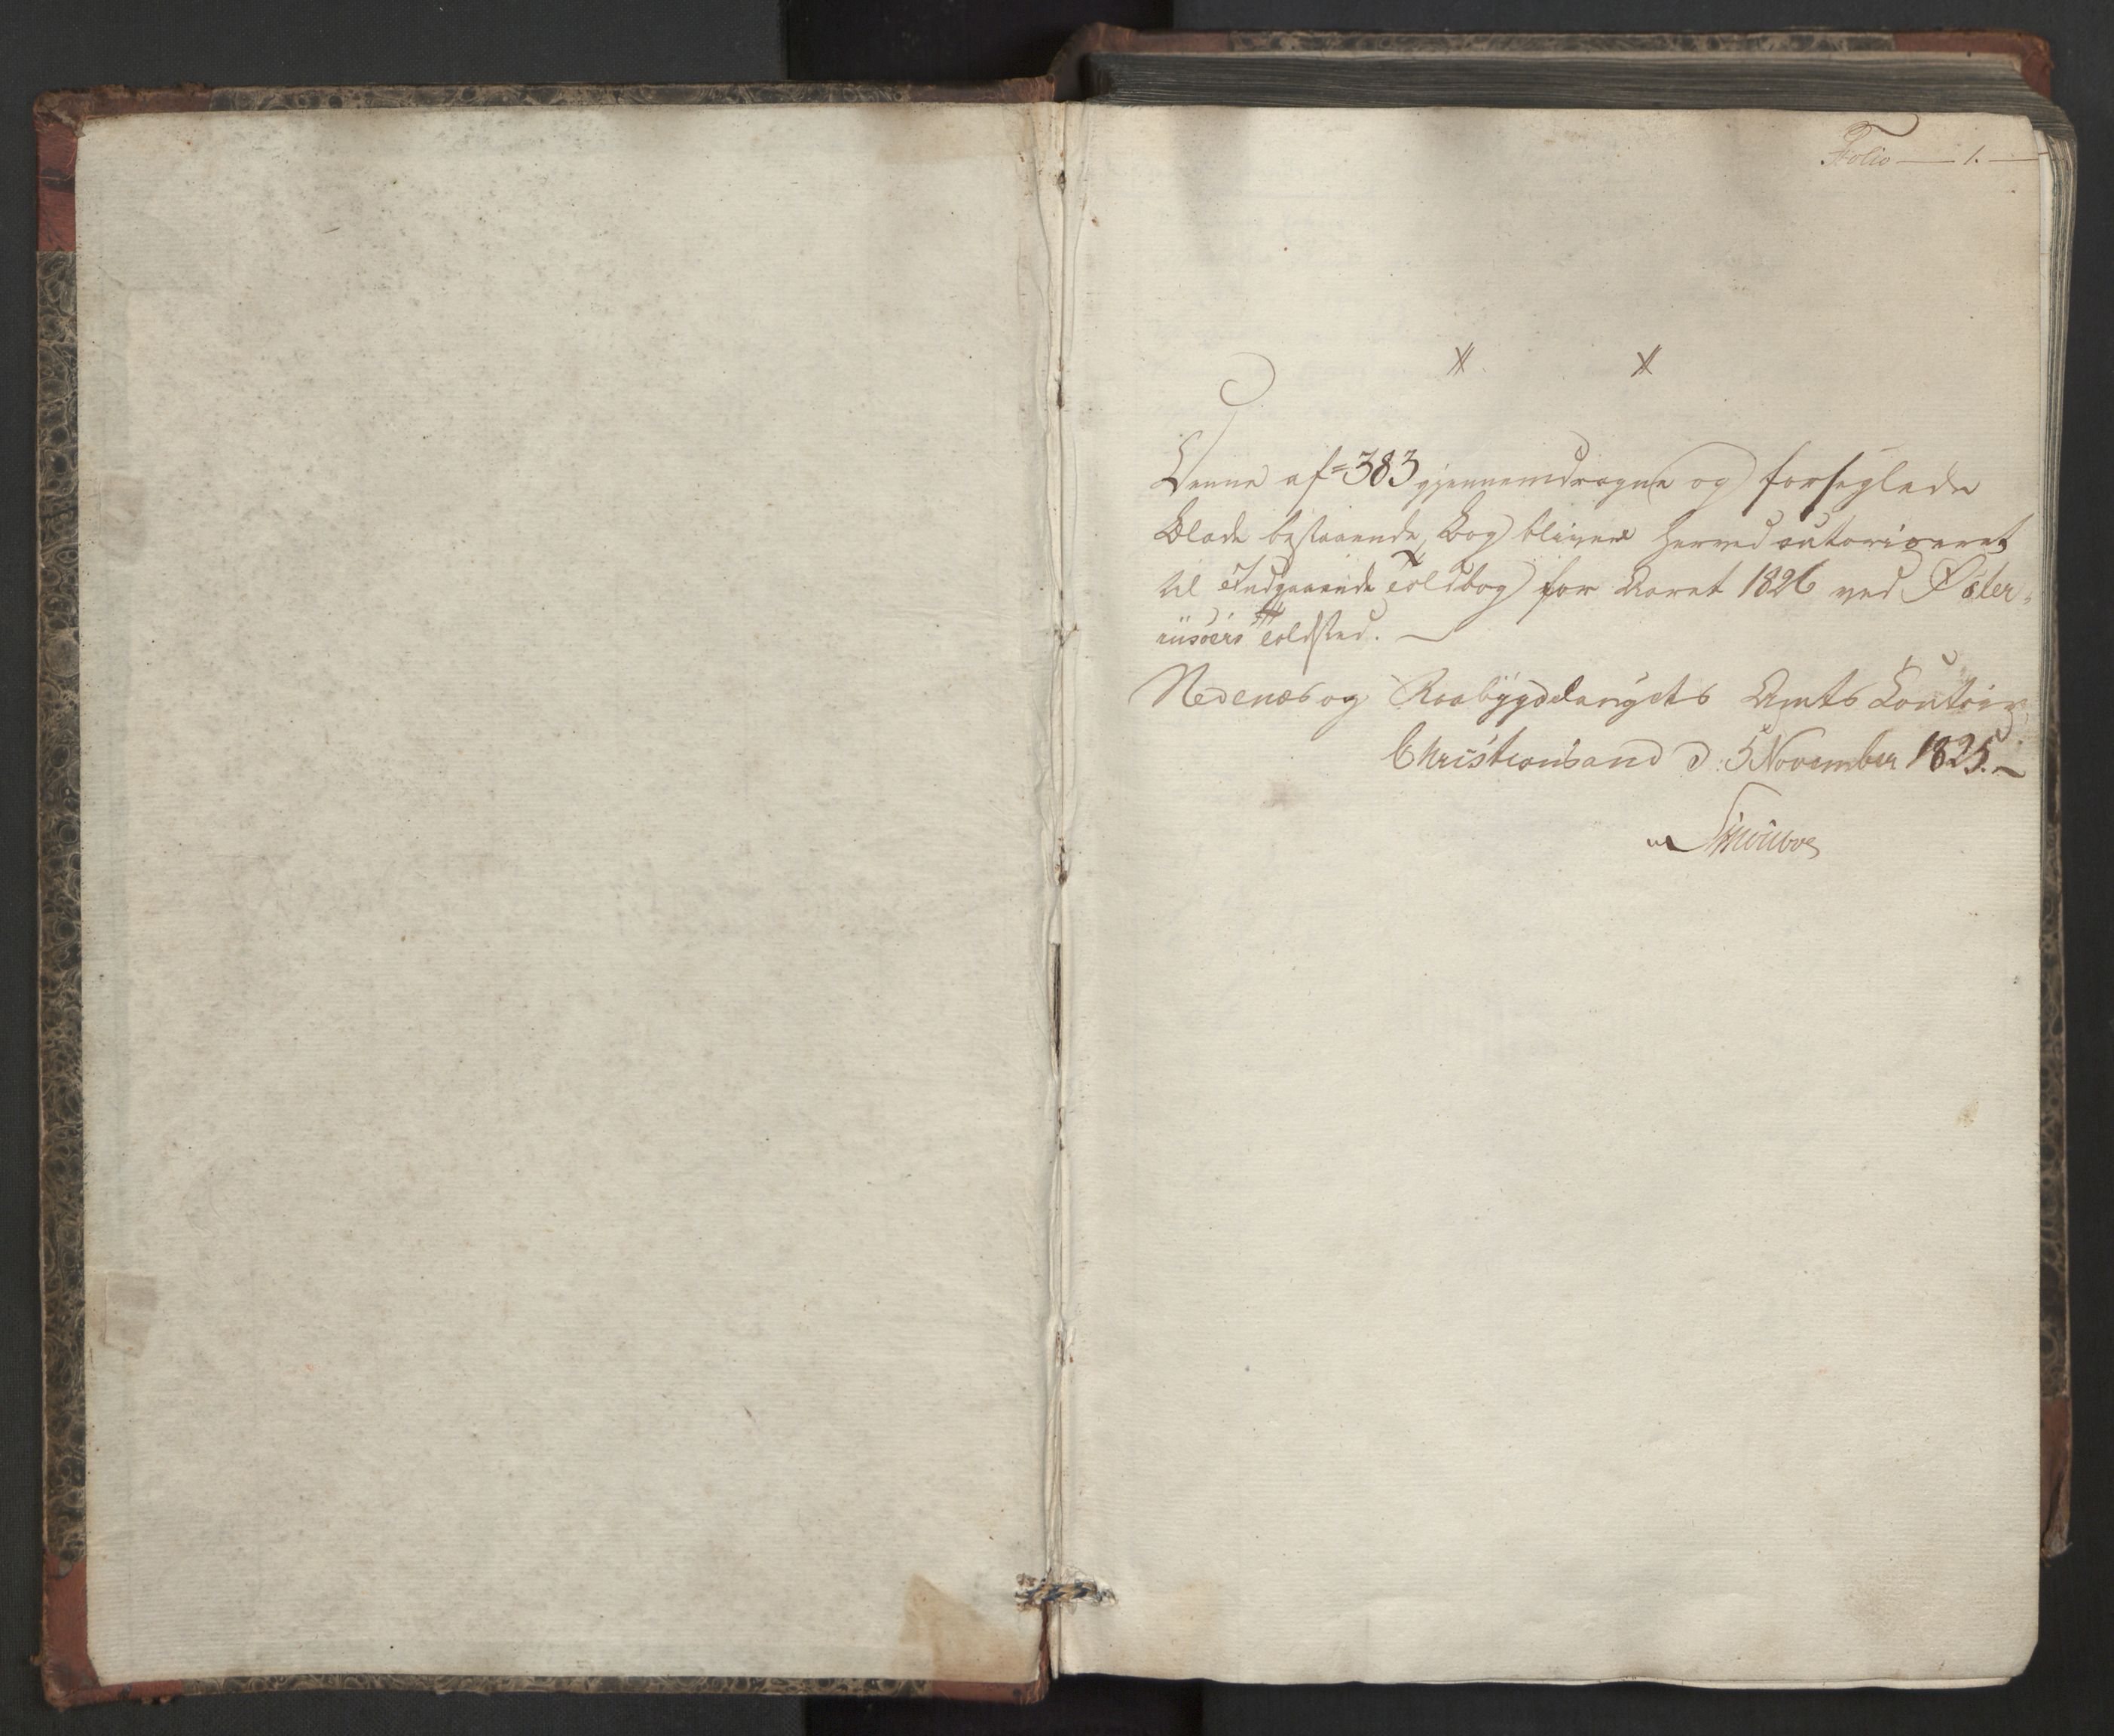 Folio — 1. —
Denne af 383 gjennemdragne og forseglede
Blade bestaaende Bog bliver herved autoriseret
til Indgaaende Toldbog for Aaret 1826 ved Øster-
riisöers Toldsted. —
Nedenæs og Raabygdelaugets Amts Contoir,
Christiansand d. 5 November 1825. —